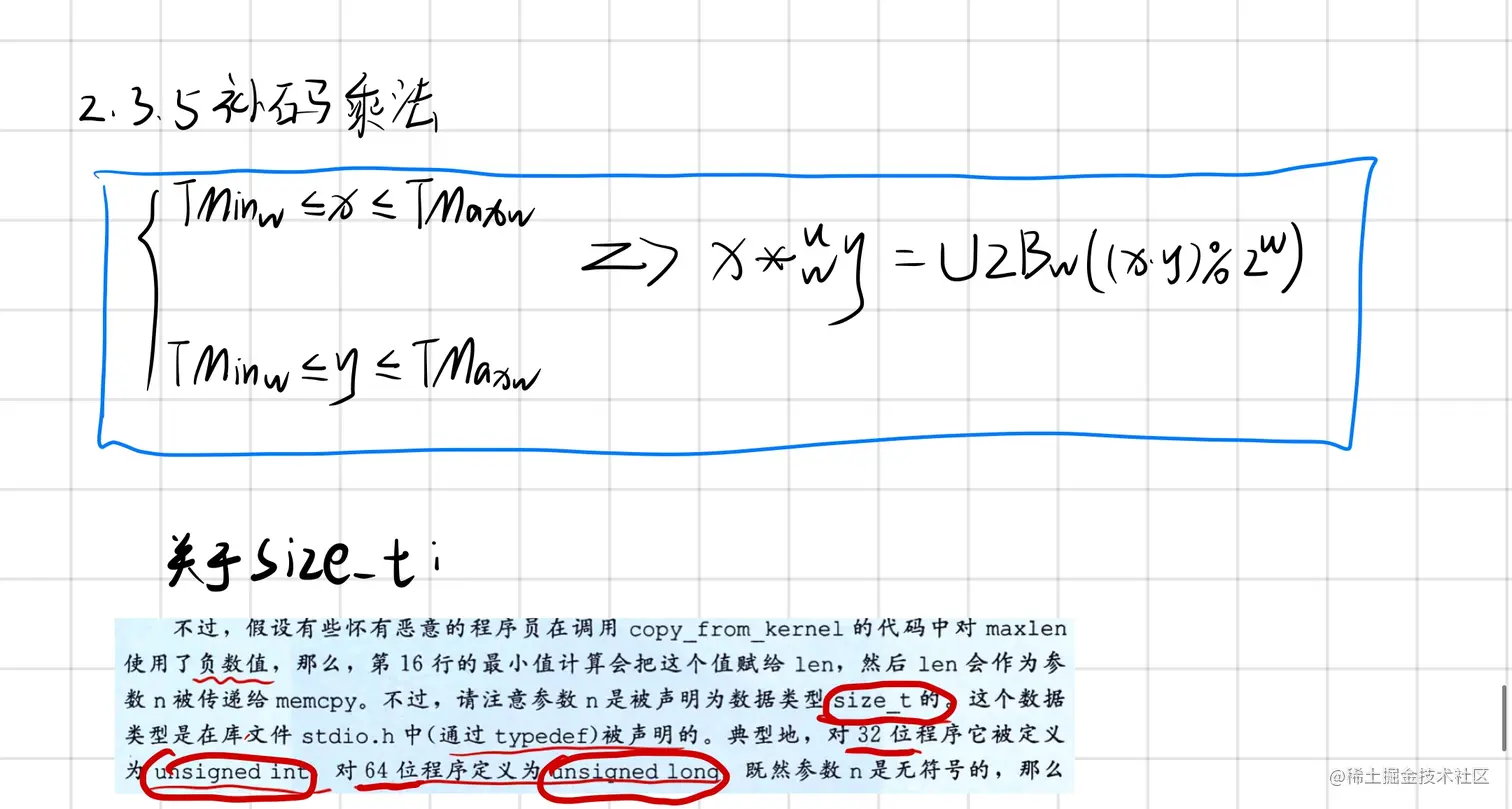 2.3.5 补码乘法
TMin_w ≤ x ≤ TMax_w
=> x *^u_w y = U2B_w((x·y)%2^w)
TMin_w ≤ y ≤ TMax_w
关于size_t:
不过，假设有些怀有恶意的程序员在调用 copy_from_kernel 的代码中对 maxlen
使用了负数值，那么，第 16 行的最小值计算会把这个值赋给 len，然后 len 会作为参
数 n 被传递给 memcpy。不过，请注意参数 n 是被声明为数据类型 size_t 的。这个数据
类型是在库文件 stdio.h 中(通过 typedef)被声明的。典型地，对 32 位程序它被定义
为 unsigned int，对 64 位程序定义为 unsigned long。既然参数 n 是无符号的，那么
@稀土掘金技术社区